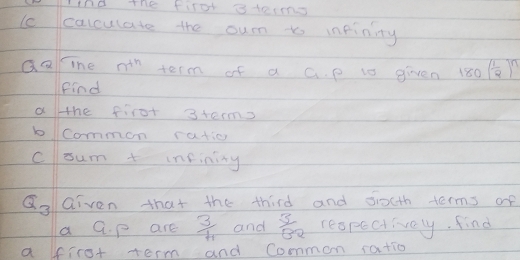 find the first 3 terms
c calculate the sum to infinity
Q2 The nth term of a G.P is given 180 (1/2)^n
find
a the first 3 terms
b Common ratio
c sum t infinity
Q3 Given that the third and sixth terms of
a G.P are 3/4 and 3/32 respectively. find
a first term and Common ratio